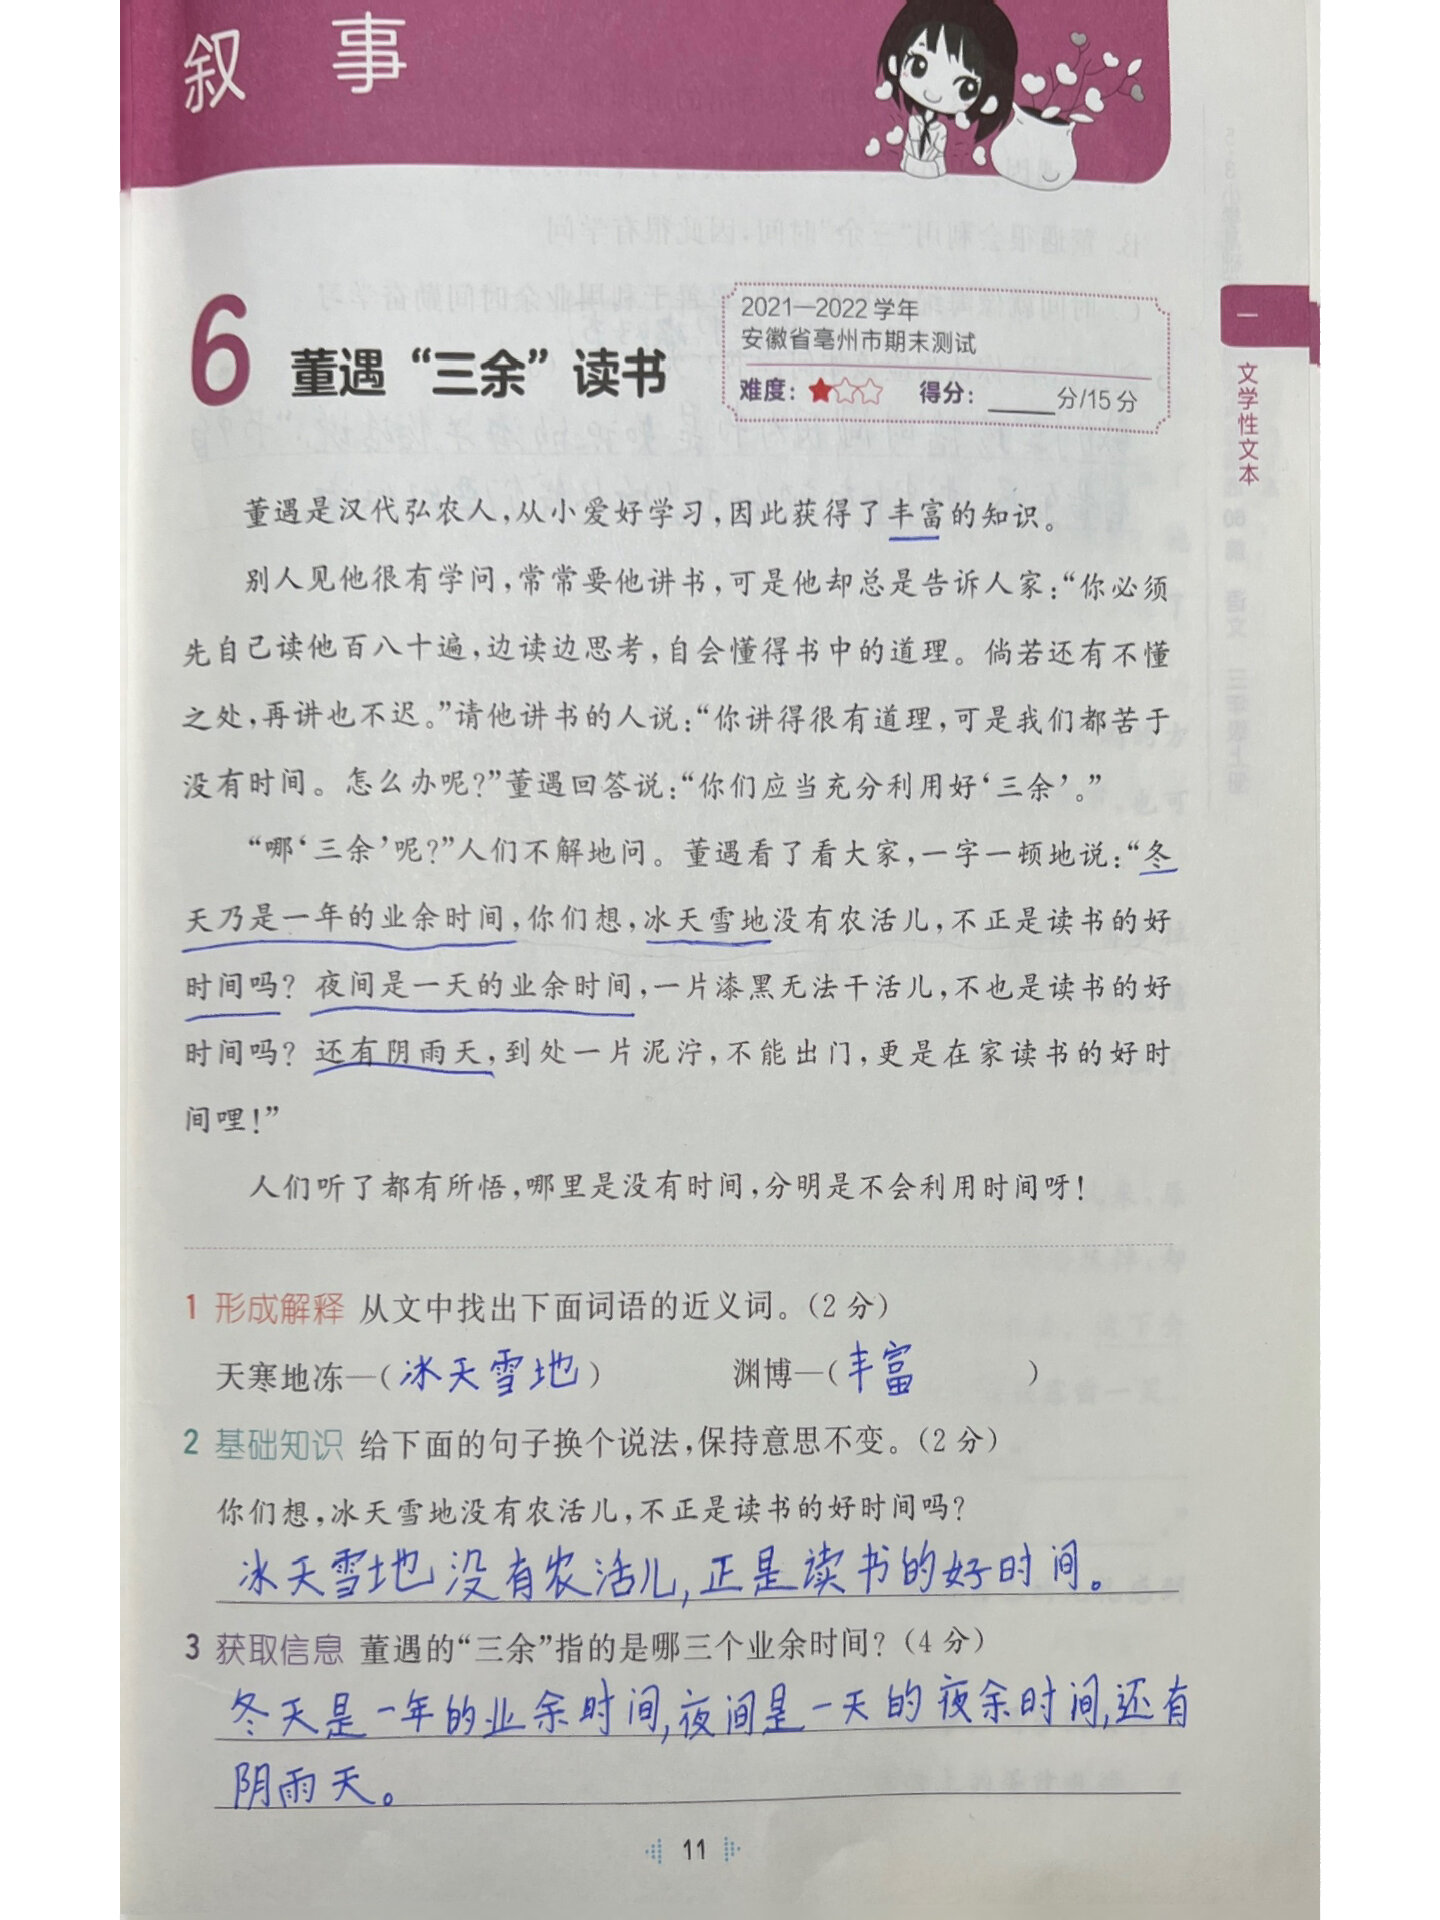 叙事
6 董遇“三余”读书
2021—2022 学年
安徽省亳州市期末测试
难度：★☆☆ 得分：____分/15分
一
文学性文本
董遇是汉代弘农人，从小爱好学习，因此获得了丰富的知识。
别人见他很有学问，常常要他讲书，可是他却总是告诉人家：“你必须
先自己读他百八十遍，边读边思考，自会懂得书中的道理。倘若还有不懂
之处，再讲也不迟。”请他讲书的人说：“你讲得很有道理，可是我们都苦于
没有时间。怎么办呢？”董遇回答说：“你们应当充分利用好‘三余’。”
“哪‘三余’呢？”人们不解地问。董遇看了看大家，一字一顿地说：“冬
天乃是一年的业余时间，你们想，冰天雪地没有农活儿，不正是读书的好
时间吗？夜间是一天的业余时间，一片漆黑无法干活儿，不也是读书的好
时间吗？还有阴雨天，到处一片泥泞，不能出门，更是在家读书的好时
间哩！”
人们听了都有所悟，哪里是没有时间，分明是不会利用时间呀！
1 形成解释 从文中找出下面词语的近义词。（2分）
天寒地冻—（冰天雪地） 渊博—（丰富）
2 基础知识 给下面的句子换个说法，保持意思不变。（2分）
你们想，冰天雪地没有农活儿，不正是读书的好时间吗？
冰天雪地没有农活儿，正是读书的好时间。
3 获取信息 董遇的“三余”指的是哪三个业余时间？（4分）
冬天是一年的业余时间，夜间是一天的夜余时间，还有
阴雨天。
11